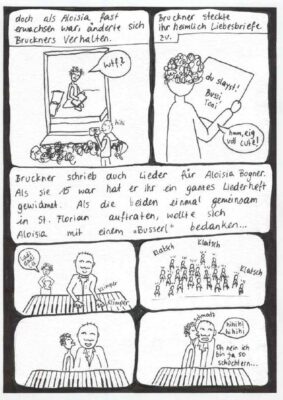 doch als Aloisia fast
erwachsen war, änderte sich
Bruckners Verhalten.
wtf?
hihi
Bruckner steckte
ihr heimlich Liebesbriefe
zu.
du slayst!
Bussi
Toni
hmm, eig
voll cute!
Bruckner schrieb auch Lieder für Aloisia Bogner.
Als sie 15 war hat er ihr ein ganzes Liederheft
gewidmet. Als die beiden einmal gemeinsam
in St. Florian auftraten, wollte sich
Aloisia mit einem „Busserl“ bedanken...
Klimper
Klimper
Klatsch
Klatsch
Klatsch
Schmatz
hihihi
hihihi
Oh nein ich
bin ja so
schüchtern...